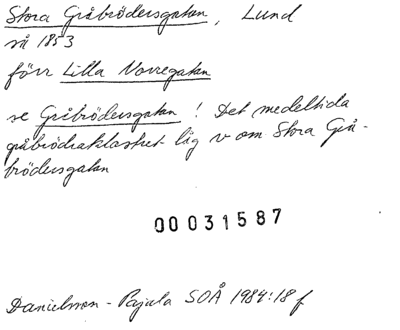 Stora Gråbrödersgatan, Lund
så 1853
förr Lilla Norregatan
se Gråbrödersgatan! Det medeltida
gråbrödraklostret låg v om Stora Grå-
brödersgatan
00031587
Danielsson - Pajula SOÅ 1984:18 f